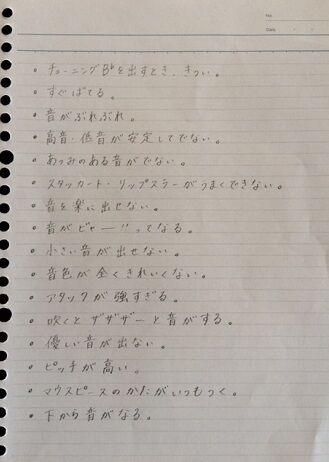 No.
Date
・チューニングB♭を出すとき、きつい。
・すぐばてる。
・音がぶれぶれ。
・高音・低音が安定してでない。
・あつみのある音がでない。
・スタッカート・リップスラーがうまくできない。
・音を楽に出せない。
・音がビャーーってなる。
・小さい音が出せない。
・音色が全くきれいくない。
・アタックが強すぎる。
・吹くとザザザーと音がする。
・優しい音が出ない。
・ピッチが高い。
・マウスピースのかたがいつもつく。
・下から音がなる。